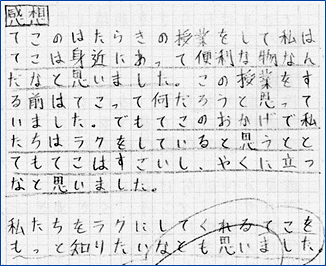 感想
てこのはたらきの授業をして私は
てこは身近にあって便利な物なん
だなと思いました。この授業をす
る前はてこって何だろうと思って
いました。でもてこのおかげで私
たちはラクをしていると思うとと
てもてこはすごいし、やくに立つ
なと思いました。
私たちをラクにしてくれるてこを
もっと知りたいなとも思いました